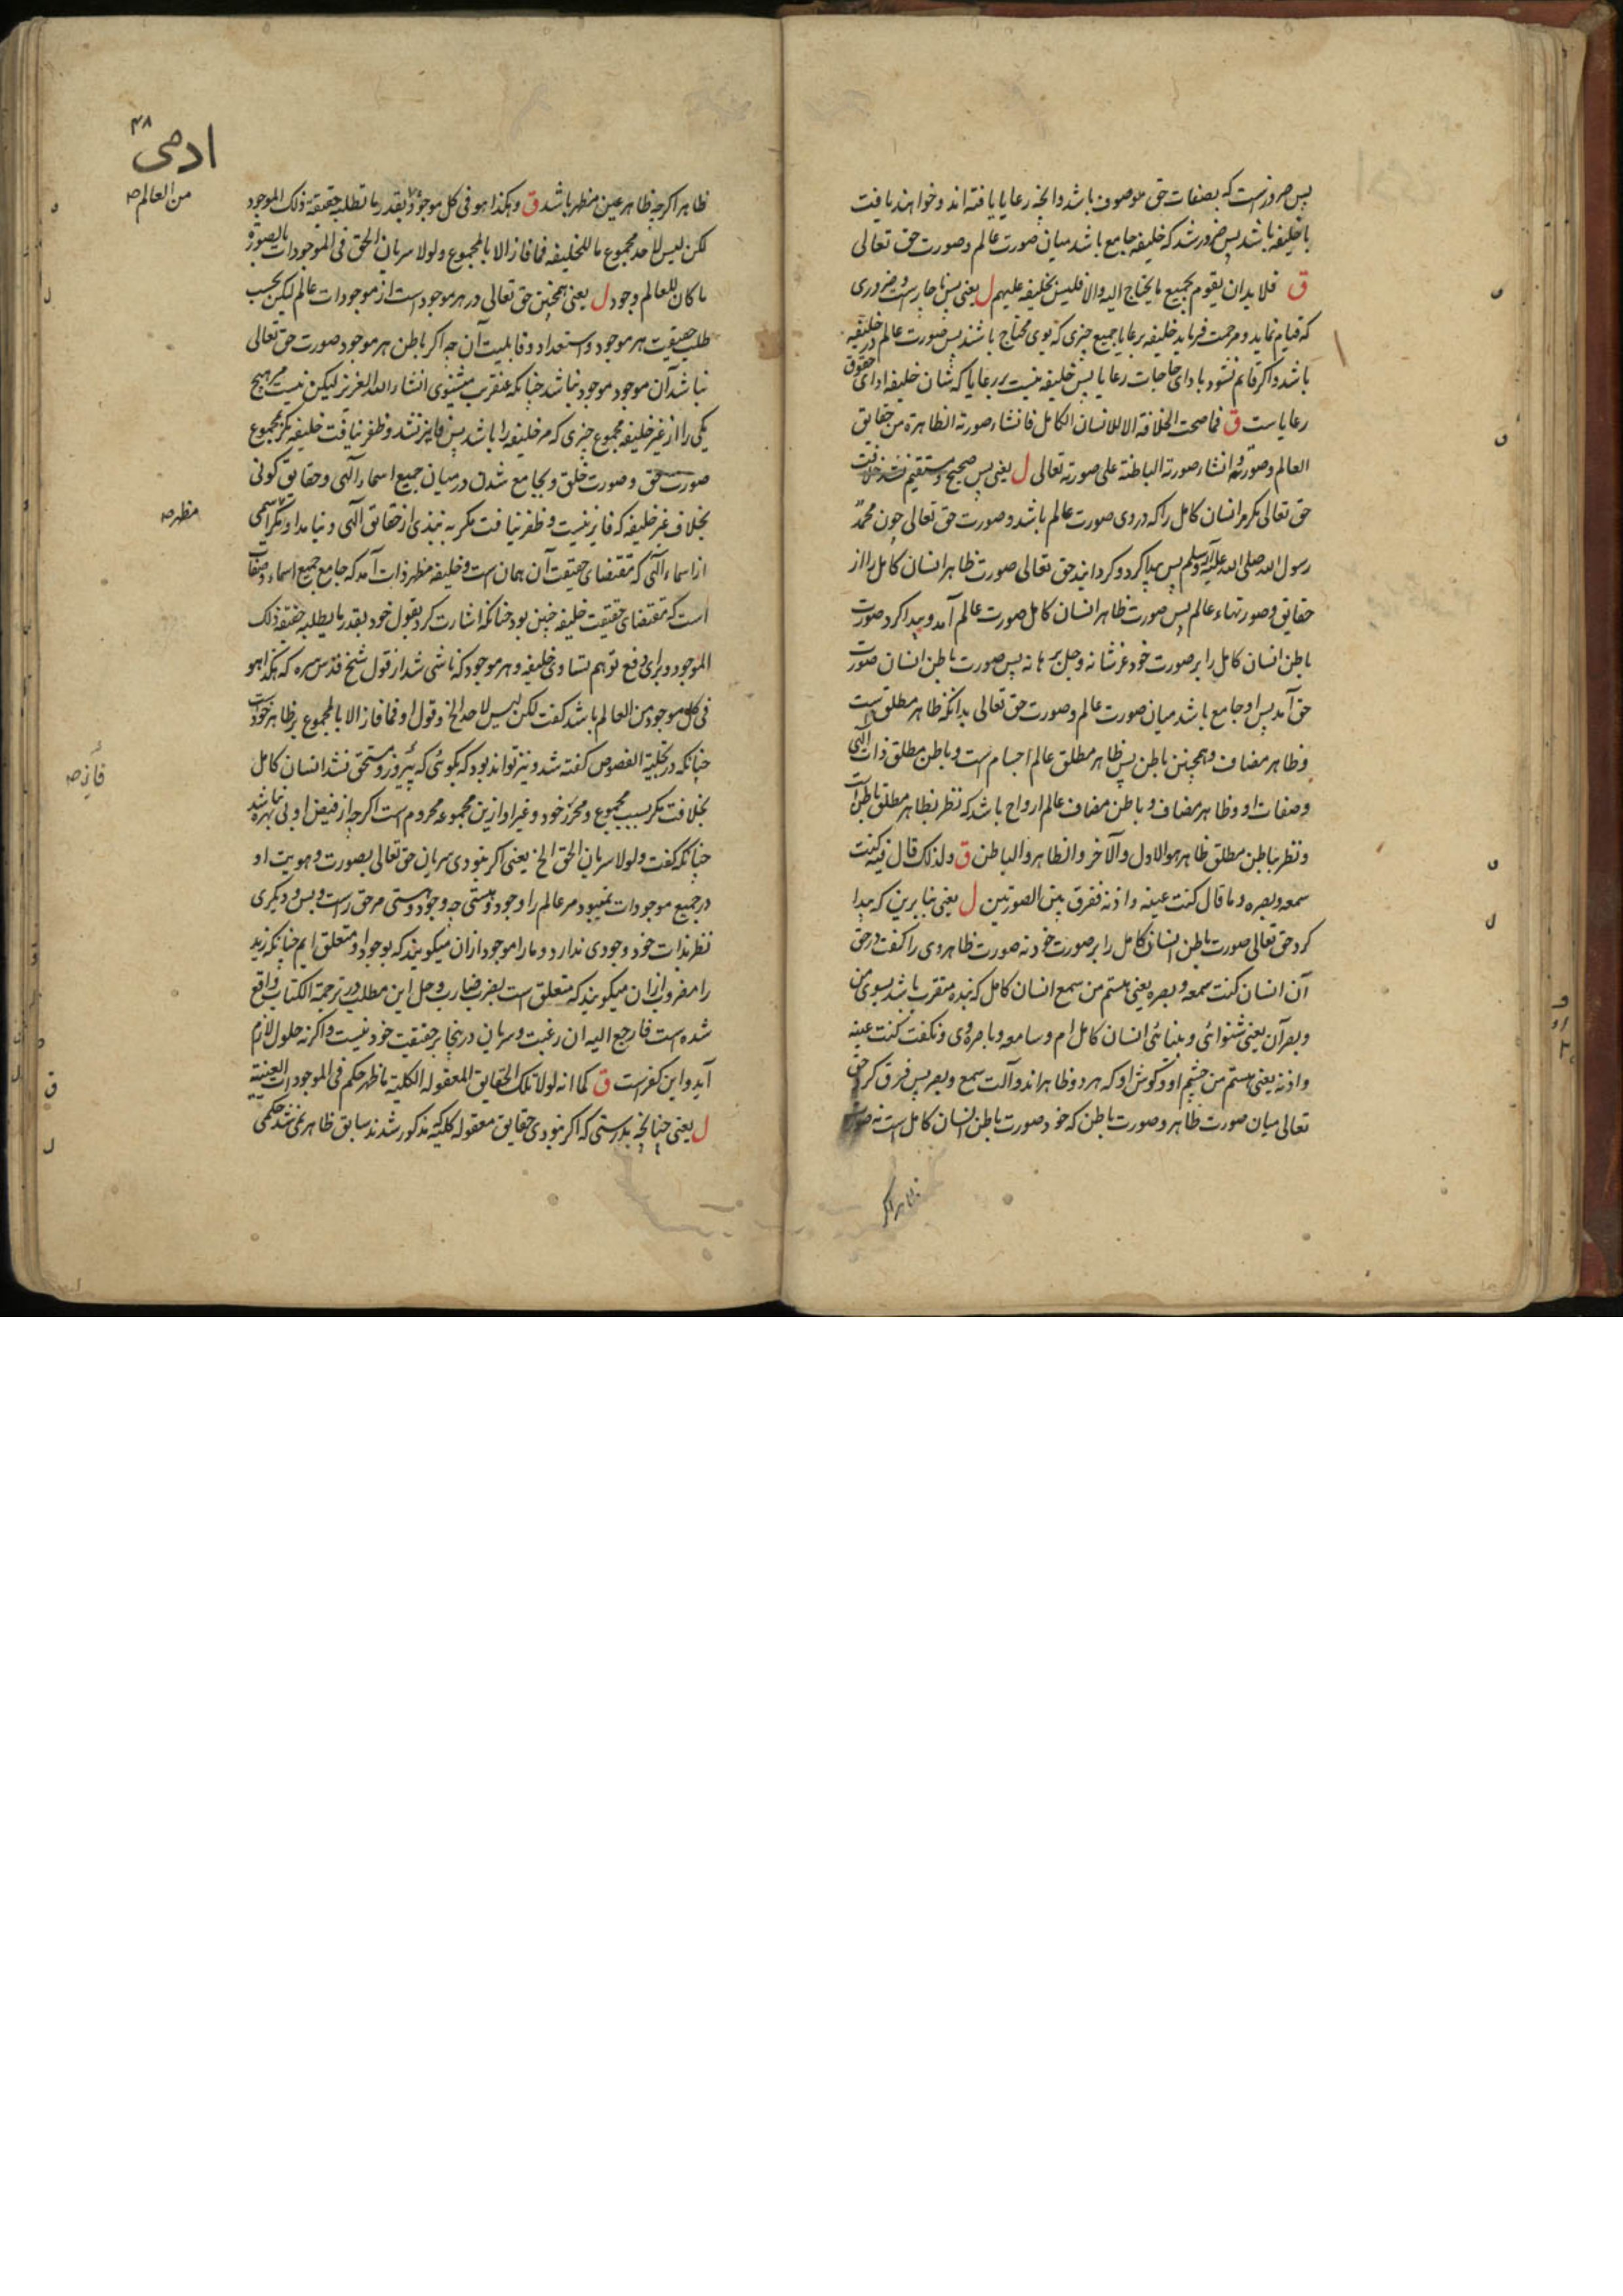 پس ضرورست که بصفات حق موصوف باشد وانچه رعایا یافته اند وخواهند یافت
با خلیفه باشد پس ضرور شد که خلیفه جامع باشد میان صورت عالم وصورت حق تعالی
ق فلا بد ان یقوم بجمیع ما یحتاج الیه والا فلیس بخلیفه علیهم ل یعنی پس ناچارست وضروری
که قیام نماید ومرحمت فرماید خلیفه بر رعایا جمیع چیزی که بوی محتاج باشند پس صورت عالم در خلیفه
باشد واکر قایم نشود بادای حاجات رعایا پس خلیفه نیست بر رعایا که شان خلیفه ادای حقوق
رعایاست ق فما صحت الخلافه الا للانسان الکامل فانشاء صورته الظاهرة من حقایق
العالم وصوره وانشاء صورته الباطنة علی صورته تعالی ل یعنی پس صحیح ومستقیم نشد خلافت
حق تعالی مکر مر انسان کامل را که در وی صورت عالم باشد وصورت حق تعالی چون محمد
رسول الله صلی الله علیه وآله وسلم پس پیدا کرد وکردانید حق تعالی صورت ظاهر انسان کامل را از
حقایق وصورتهاء عالم پس صورت ظاهر انسان کامل صورت عالم آمد وپیدا کرد صورت
باطن انسان کامل را بر صورت خود عز شانه وجل برهانه پس صورت باطن انسان صورت
حق آمد پس او جامع باشد میان صورت عالم وصورت حق تعالی بدانکه ظاهر مطلق است
وظاهر مضاف وهمچنین باطن پس ظاهر مطلق عالم اجسام است وباطن مطلق ذات الهی
وصفات او وظاهر مضاف وباطن مضاف عالم ارواح باشد که نظر بظاهر مطلق باطن است
ونظر بباطن مطلق ظاهر هو الاول والآخر والظاهر والباطن ق ولذلک قال فیه کنت
سمعه وبصره وما قال کنت عینه واذنه ففرق بین الصورتین ل یعنی بنا برین که پیدا
کرد حق تعالی صورت باطن انسان کامل را بر صورت خود نه صورت ظاهر وی را کفت در حق
آن انسان کنت سمعه وبصره یعنی هستم من سمع انسان کامل که بنده متقرب باشد بسوی من
وبصر آن یعنی شنوائی وبینائی انسان کامل ام وسامعه وباصره وی ونکفت کنت عینه
واذنه یعنی هستم من چشم او وکوش او که هر دو ظاهر اند وآلت سمع وبصر پس فرق کرد حق
تعالی میان صورت ظاهر وصورت باطن که خود صورت باطن انسان کامل است نه صورت
ظاهر اکر
۴۸
ادمی
ظاهر اکرچه ظاهر عین مظهر باشد ق وهکذا هو فی کل موجود بقدر ما تطلبه حقیقة ذلک الموجود
من العالم صح
لکن لیس لاحد مجموع ما للخلیفه فما فاز الا بالمجموع ولولا سریان الحق فی الموجودات بالصورة
ما کان للعالم وجود ل یعنی همچنین حق تعالی در هر موجود است از موجودات عالم لیکن بحسب
طلب حقیقت هر موجود واستعداد وقابلیت آن چه اکر باطن هر موجود صورت حق تعالی
نباشد آن موجود موجود نباشد چنانکه عنقریب میشنوی انشاء الله العزیز لیکن نیست مر هیچ
یکی را از غیر خلیفه مجموع چیزی که مر خلیفه را باشد پس فایز نشد وظفر نیافت خلیفه مکر بمجموع
صورت حق وصورت خلق وبجامع شدن در میان جمیع اسماء الهی وحقایق کونی
بخلاف غیر خلیفه که فایز نیست وظفر نیافت مکر به نبذی از حقایق الهی ونیامد او مکر اسمی
مظهر صح
از اسماء الهی که مقتضای حقیقت آن همان است وخلیفه مظهر ذات آمد که جامع جمیع اسماء وصفات
است که مقتضای حقیقت خلیفه چنین بود چنانکه اشارت کرد بقول خود بقدر ما یطلبه حقیقة ذلک
الموجود وبرای دفع توهم تساوی خلیفه وهر موجود که ناشی شد از قول شیخ قدس سره که هکذا هو
فی کل موجود من العالم باشد کفت لکن لیس لاحد الخ وقول او فما فاز الا بالمجموع بر ظاهر خودست
چنانکه در تحلیة الفصوص کفته شد ونیز تواند بود که بکوئی که پیروز ومستحق نشد انسان کامل
فایز صح
بخلافت مکر بسبب مجموع ومحرز خود وغیر او ازین مجموعه محروم است اکرچه از فیض او بی بهره نباشد
چنانکه کفت ولولا سریان الحق الخ یعنی اکر نبودی سریان حق تعالی بصورت وهویت او
در جمیع موجودات نمیبود مر عالم را وجود وهستی چه وجود وهستی مر حق راست وبس ودیکری
نظر بذات خود وجودی ندارد وما را موجود ازان میکویند که بوجود او متعلق ایم چنانکه زید
را مضروب ازان میکویند که متعلق است بضرب ضارب وحل این مطلب در ترجمة الکتاب واقع
شده است فارجع الیه ان رغبت وسریان درینجا بر حقیقت خود نیست واکر نه حلول لازم
آید واین کفرست ق کما انه لولا تلک الحقایق المعقوله الکلیة ما ظهر حکم فی الموجودات العینیة
ل یعنی چنانچه بدرستی که اکر نبودی حقایق معقوله کلیه که مذکور شدند سابق ظاهر نمی شد حکمی